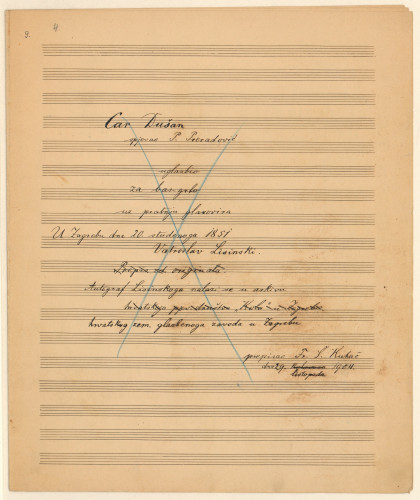 9. 4
Car Dušan
spjevao P. Preradović
uglasbio
za bas grlo
uz pratnju glasovira
U Zagrebu dne 20. studenoga 1851
Vatroslav Lisinski.
Prepis od originala.
Autograf Lisinskoga nalazi se u arkivu
hrvatskoga pjev. društva „Kolo" u Zagrebu
hrvatskog zem. glasbenoga zavoda u Zagrebu
prepisao Fr. Š. Kuhač
dne 29. listopada 1904.